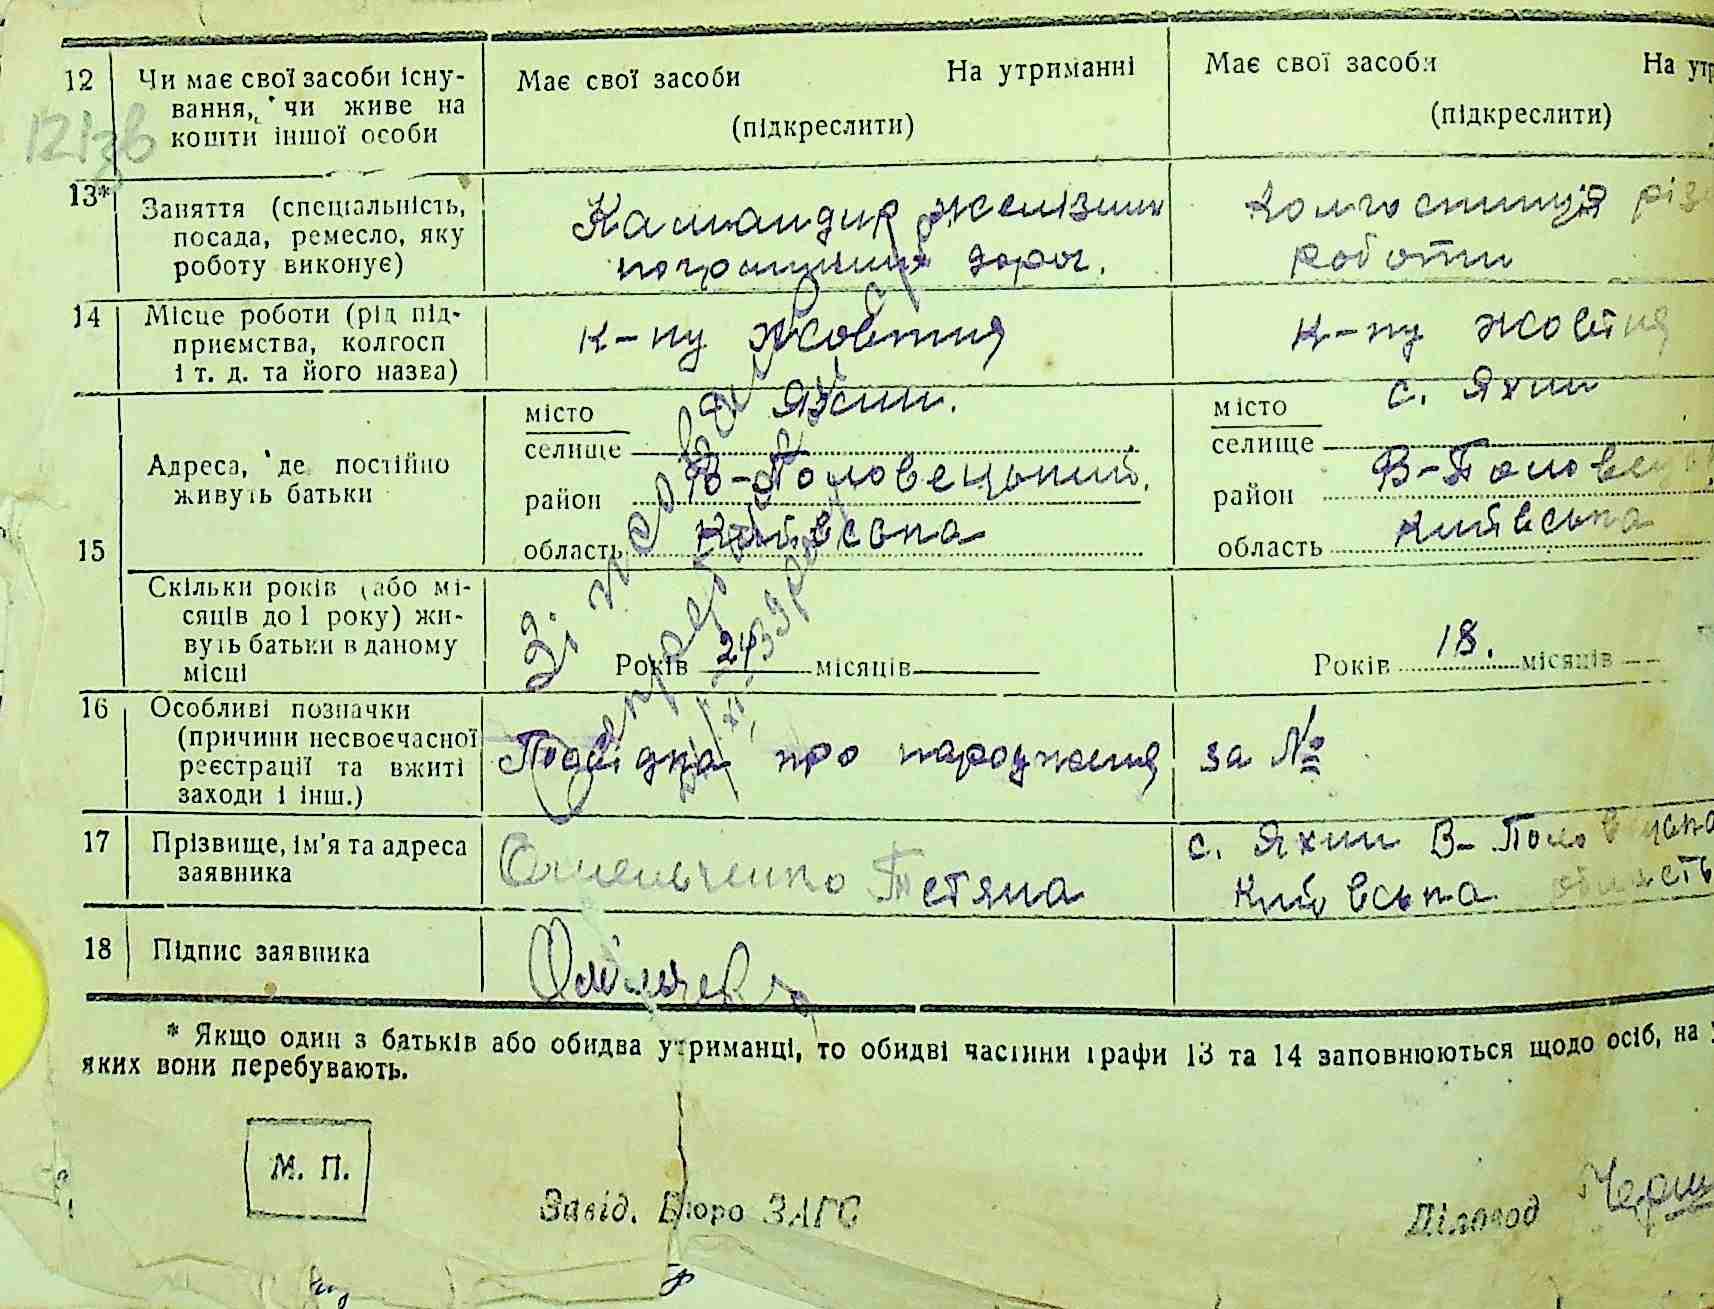 12
Чи має свої засоби існу-
вання, чи живе на
кошти іншої особи
Має свої засоби На утриманні
(підкреслити)
Має свої засоби На утр
(підкреслити)
13*
Заняття (спеціальність,
посада, ремесло, яку
роботу виконує)
Камандир желізних
дорог.
різ
роботи
14
Місце роботи (рід під-
приємства, колгосп
і т. д. та його назва)
к-пу Жовтня
к-пу Жовтня
15
Адреса, де постійно
живуть батьки
місто
селище
Яхни.
район В-Половецький.
область Київська
місто
селище
с. Яхни
район В-Половец
область Київська
Скільки років (або мі-
сяців до 1 року) жи-
вуть батьки в даному
місці
Років 24 місяців
Років 18. місяців
16
Особливі позначки
(причини несвоєчасної
реєстрації та вжиті
заходи і інш.)
Посвідка про народження за №
17
Прізвище, ім'я та адреса
заявника
Омельченко Тетяна
с. Яхни В-Половецька
Київська область
18
Підпис заявника
* Якщо один з батьків або обидва утриманці, то обидві частини графи 13 та 14 заповнюються щодо осіб, на у
яких вони перебувають.
М. П.
Завід. Бюро ЗАГС
Діловод